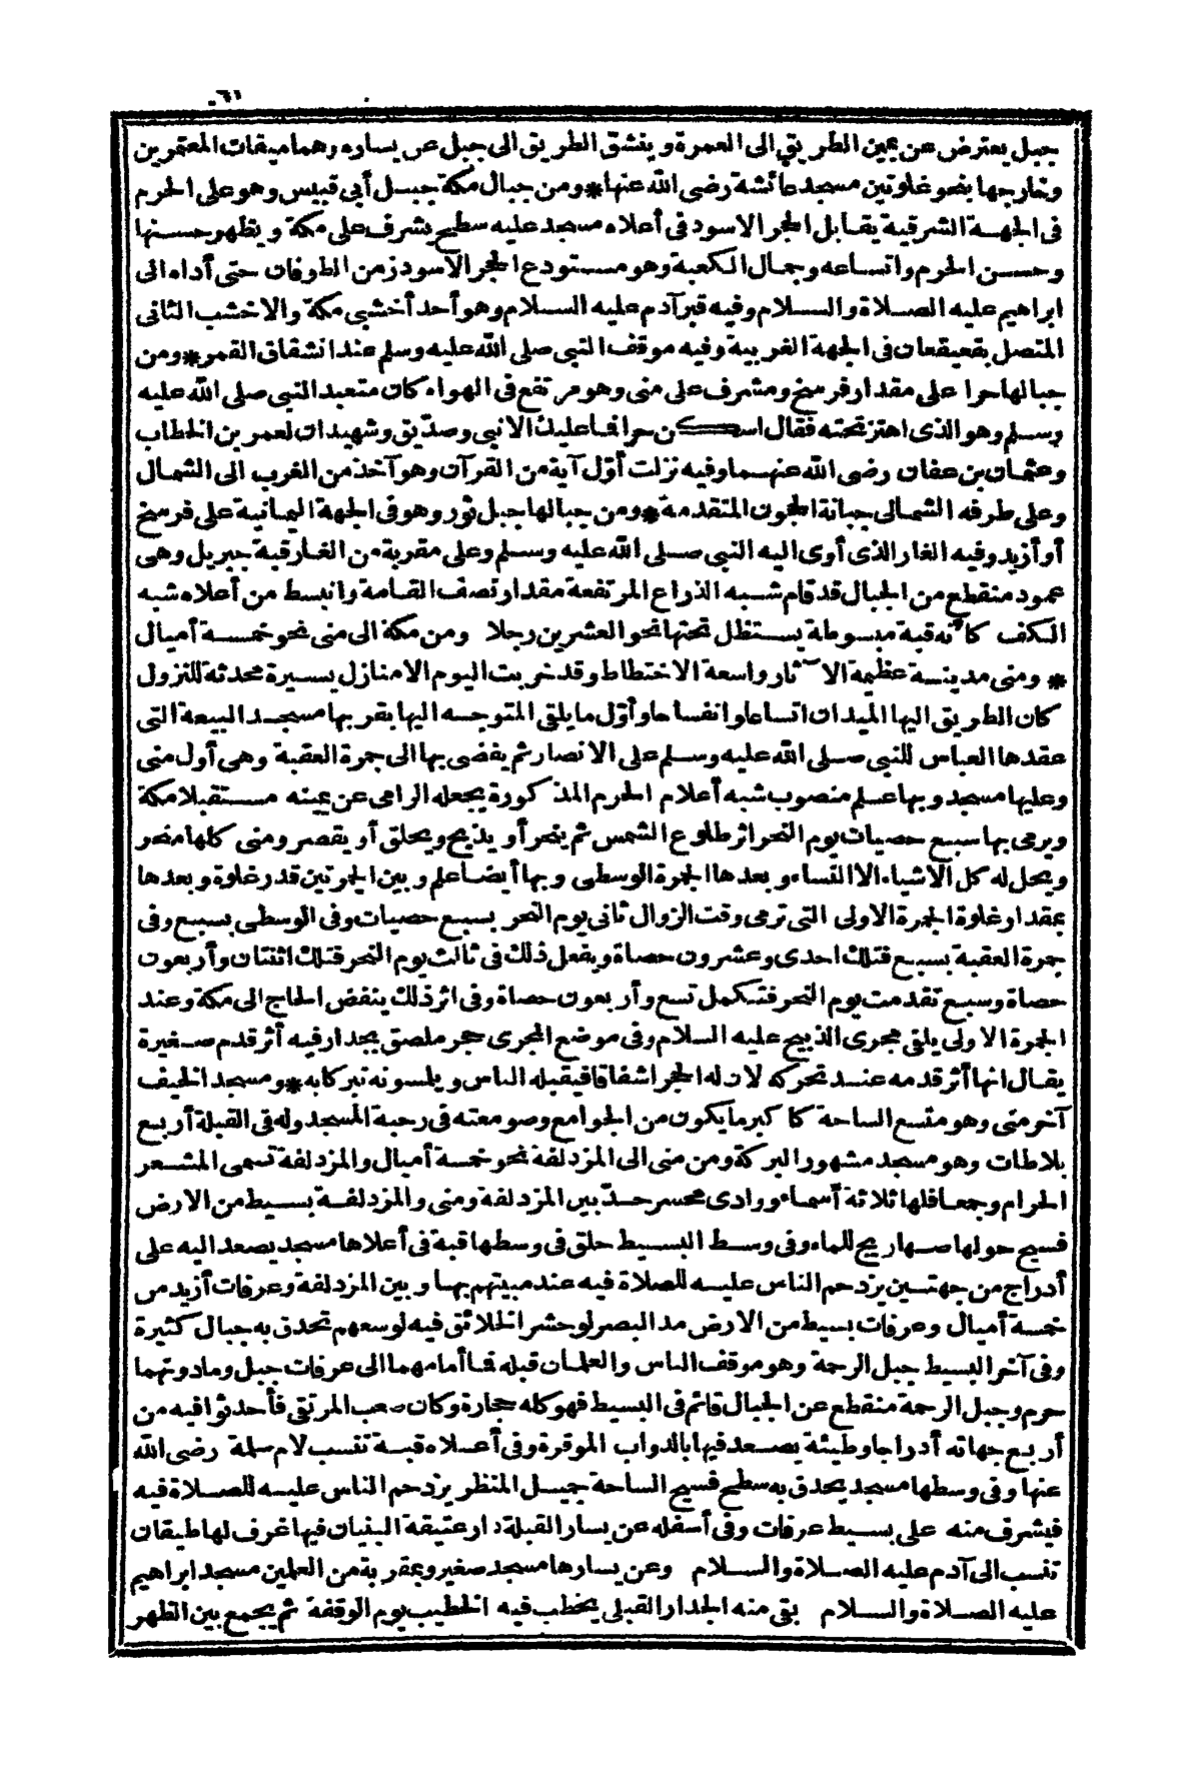 ٦١
جبل يعترض عن يمين الطريق الى العمرة وينشق الطريق الى جبل عن يساره وهما ميقات المعتمرين
وخارجها بنحو غلوتين مسجد عائشة رضى الله عنها * ومن جبال مكة جبل أبى قبيس وهو على الحرم
فى الجهة الشرقية يقابل الحجر الاسود فى أعلاه مسجد عليه سطح يشرف على مكة ويظهر حسنها
وحسن الحرم واتساعه وجمال الكعبة وهو مستودع الحجر الاسود زمن الطوفان حتى أداه الى
ابراهيم عليه الصلاة والسلام وفيه قبر آدم عليه السلام وهو أحد أخشبى مكة والاخشب الثانى
المتصل بقعيقعان فى الجهة الغربية وفيه موقف النبى صلى الله عليه وسلم عند انشقاق القمر * ومن
جبالها حرا على مقدار فرسخ ومشرف على منى وهو مرتفع فى الهواء كان متعبد النبى صلى الله عليه
وسلم وهو الذى اهتز تحته فقال اسكن حرا فما عليك الا نبى وصديق وشهيدان لعمر بن الخطاب
وعثمان بن عفان رضى الله عنهما وفيه نزلت أول آية من القرآن وهو آخذ من الغرب الى الشمال
وعلى طرفه الشمالى جبانة الحجون المتقدمة * ومن جبالها جبل ثور وهو فى الجهة اليمانية على فرسخ
أو أزيد وفيه الغار الذى أوى اليه النبى صلى الله عليه وسلم وعلى مقربة من الغار قبة جبريل وهى
عمود منقطع من الجبال قد قام شبه الذراع المرتفعة مقدار نصف القامة وانبسط من أعلاه شبه
الكف كأنه قبة مبسوطة يستظل تحتها نحو العشرين رجلا ومن مكة الى منى نحو خمسة أميال
* ومنى مدينة عظيمة الآثار واسعة الاختطاط وقد خربت اليوم الا منازل يسيرة محدثة للنزول
كان الطريق اليها الميدان اتساعا وانفساحا وأول ما يلقى المتوجه اليها بقربها مسجد البيعة التى
عقدها العباس للنبى صلى الله عليه وسلم على الانصار ثم يفضى بها الى جمرة العقبة وهى أول منى
وعليها مسجد وبها علم منصوب شبه أعلام الحرم المذكورة يجعله الرامى عن يمينه مستقبلا مكة
ويرمى بها سبع حصيات يوم النحر اثر طلوع الشمس ثم ينحر أو يذبح ويحلق أو يقصر ومنى كلها منحر
ويحل له كل الاشياء الا النساء وبعدها الجمرة الوسطى وبها أيضا علم وبين الجمرتين قدر غلوة وبعدها
بمقدار غلوة الجمرة الاولى التى ترمى وقت الزوال ثانى يوم النحر بسبع حصيات وفى الوسطى بسبع وفى
جمرة العقبة بسبع فتلك احدى وعشرون حصاة ويفعل ذلك فى ثالث يوم النحر فتلك اثنتان وأربعون
حصاة وسبع تقدمت يوم النحر فتكمل تسع وأربعون حصاة وفى اثر ذلك ينفض الحاج الى مكة وعند
الجمرة الاولى يلقى مجرى الذبيح عليه السلام وفى موضع المجرى حجر ملصق بجدار فيه أثر قدم صغيرة
يقال انها أثر قدمه عند تحركه لان له الحجر اشفاقا فيقبله الناس ويلمسونه تبركا به * ومسجد الخيف
آخر منى وهو متسع الساحة كأكبر ما يكون من الجوامع وصومعته فى رحبة المسجد وله فى القبلة أربع
بلاطات وهو مسجد مشهور البركة ومن منى الى المزدلفة نحو خمسة أميال والمزدلفة تسمى المشعر
الحرام وجمعا فلها ثلاثة أسماء ووادى محسر حد بين المزدلفة ومنى والمزدلفة بسيط من الارض
فسيح حولها صهاريج للماء وفى وسط البسيط حلق فى وسطها قبة فى أعلاها مسجد يصعد اليه على
أدراج من جهتين يزدحم الناس عليه للصلاة فيه عند مبيتهم بها وبين المزدلفة وعرفات أزيد من
خمسة أميال وعرفات بسيط من الارض مد البصر لو حشر الخلائق فيه لوسعهم تحدق به جبال كثيرة
وفى آخر البسيط جبل الرحمة وهو موقف الناس والعلمان قبله فما أمامهما الى عرفات جبل وما دونهما
حرم وجبل الرحمة منقطع عن الجبال قائم فى البسيط فهو كله حجارة وكان صعب المرتقى فأحدثوا فيه من
أربع جهاته أدراجا وطيئة يصعد فيها بالدواب الموقرة وفى أعلاه قبة تنسب لام سلمة رضى الله
عنها وفى وسطها مسجد يحدق به سطح فسيح الساحة جميل المنظر يزدحم الناس عليه للصلاة فيه
فيشرف منه على بسيط عرفات وفى أسفله عن يسار القبلة دار عتيقة البنيان فيها غرف لها طيقان
تنسب الى آدم عليه الصلاة والسلام وعن يسارها مسجد صغير وبمقربة من العلمين مسجد ابراهيم
عليه الصلاة والسلام بقى منه الجدار القبلى يخطب فيه الخطيب يوم الوقفة ثم يجمع بين الظهر